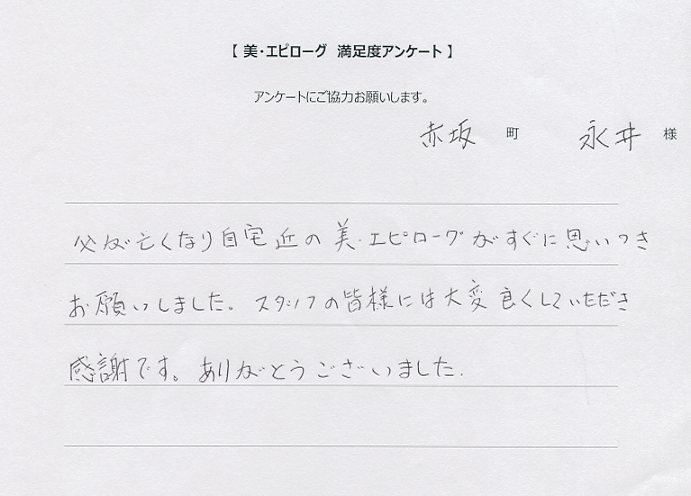 【 美・エピローグ 満足度アンケート 】
アンケートにご協力お願いします。
赤坂 町 永井 様
父が亡くなり自宅近の美・エピローグがすぐに思いつき
お願いしました。スタッフの皆様には大変良くしていただき
感謝です。ありがとうございました.